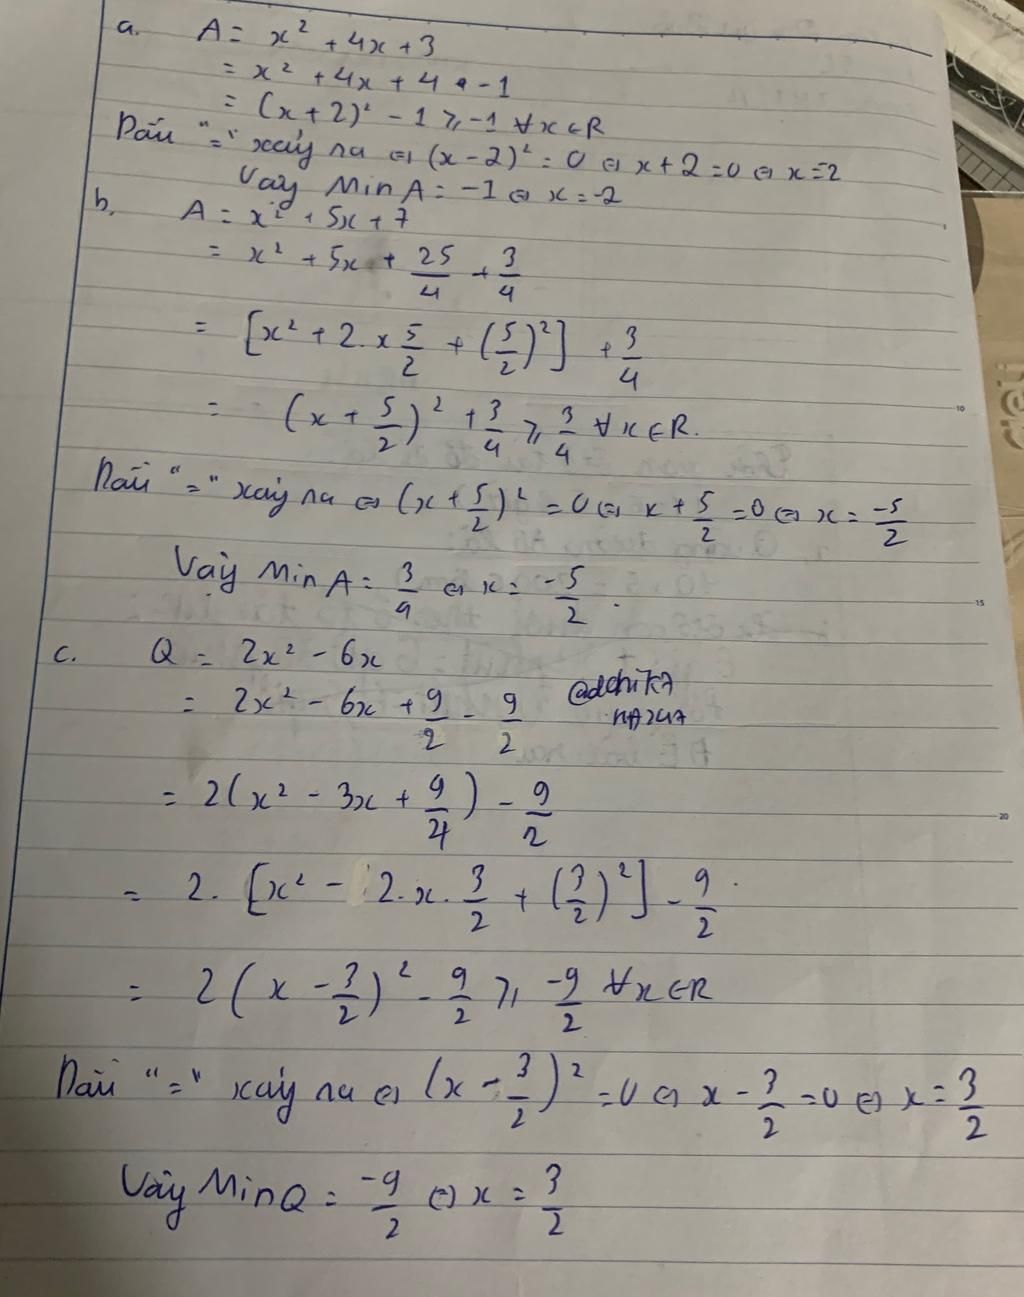 a. A = x² + 4x + 3
= x² + 4x + 4 - 1
= (x + 2)² - 1 ⩾ -1 ∀x ∈ R
Dấu "=" xảy ra ⇔ (x - 2)² = 0 ⇔ x + 2 = 0 ⇔ x = -2
Vậy Min A = -1 ⇔ x = -2
b. A = x² + 5x + 7
= x² + 5x + 25/4 + 3/4
= [x² + 2. x 5/2 + (5/2)²] + 3/4
= (x + 5/2)² + 3/4 ⩾ 3/4 ∀x ∈ R.
Dấu "=" xảy ra ⇔ (x + 5/2)² = 0 ⇔ x + 5/2 = 0 ⇔ x = -5/2
Vậy Min A = 3/4 ⇔ x = -5/2.
c. Q = 2x² - 6x
= 2x² - 6x + 9/2 - 9/2
= 2(x² - 3x + 9/4) - 9/2
= 2. [x² - 2.x. 3/2 + (3/2)²] - 9/2
= 2(x - 3/2)² - 9/2 ⩾ -9/2 ∀x ∈ R
Dấu "=" xảy ra ⇔ (x - 3/2)² = 0 ⇔ x - 3/2 = 0 ⇔ x = 3/2
Vậy Min Q = -9/2 ⇔ x = 3/2